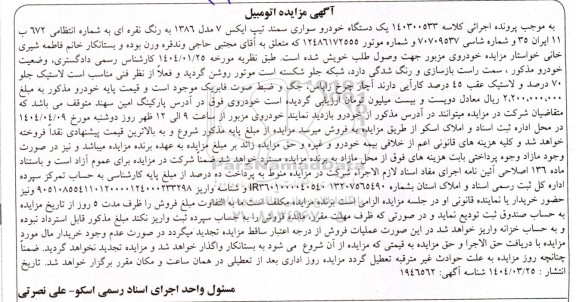 آگهی مزایده اتومبیل
به موجب پرونده اجرائی کلاسه ۱۴۰۳۰۰۵۳۳ یک دستگاه خودرو سواری سمند تیپ ایکس ۷ مدل ۱۳۸۶ به رنگ نقره ای به شماره انتظامی ۶۷۲ ب
۱۱ ایران ۳۵ و شماره شاسی ۷۰۷۰۹۵۳۷ و شماره موتور ۱۲۴۸۶۱۷۲۵۵۵ که متعلق به آقای مجتبی حاجی وندفره ورن بوده و بستانکار خانم فاطمه شیری
خانی خواستار مزایده خودروی مزبور جهت وصول طلب خویش شده است. طبق نظریه مورخه ۱۴۰۴/۰۱/۲۵ کارشناس رسمی دادگستری، وضعیت
خودرو مذکور ، سمت راست بازسازی و رنگ شدگی دارد، شبکه جلو شکسته است موتور روشن گردید و فعلا از نظر فنی مناسب است لاستیک جلو
۷۰ درصد و لاستیک عقب ۴۵ درصد کارآیی دارند آچار چرخ زاپاس جک و ضبط صوت فابریک موجود است و قیمت پایه خودرو مذکور به مبلغ
۲,۲۰۰,۰۰۰,۰۰۰ ریال معادل دویست و بیست میلیون تومان ارزیابی گردیده است خودروی فوق در آدرس پارکینگ امین سهند متوقف می باشد که
متقاضیان شرکت در مزایده میتوانند در آدرس مذکور از خودرو بازدید نمایند خودروی مزبور از ساعت ۹ الی ۱۲ ظهر روز دوشنبه مورخ ۱۴۰۴/۰۴/۰۹
در محل اداره ثبت اسناد و املاک اسکو از طریق مزایده به فروش میرسد مزایده از مبلغ پایه مذکور شروع و به بالاترین قیمت پیشنهادی نقدا فروخته
خواهد شد و کلیه هزینه های قانونی اعم از خلافی بیمه خودرو و غیره و حق مزایده زائد بر مبلغ مزایده به عهده برنده مزایده میباشد و نیز در صورت
وجود مازاد وجوه پرداختی بابت هزینه های فوق از محل مازاد به برنده مزایده مسترد خواهد شد ضمنا شرکت در مزایده برای عموم آزاد است و باستناد
ماده ۱۳۶ اصلاحی آئین نامه اجرای مفاد اسناد لازم الاجرا، شرکت در مزایده منوط به پرداخت ده درصد از مبلغ پایه کارشناسی به حساب تمرکز سپرده
اداره کل ثبت رسمی اسناد و املاک استان بشماره
حضور خریدار یا نماینده قانونی او در جلسه مزایده الزامی است برنده مزایده مکلف است ما به التفاوت مبلغ فروش را ظرف مدت ۵ روز از تاریخ مزایده
به حساب صندوق ثبت تودیع نماید و در صورتی که ظرف مهلت مقرر مانده فروش را به حساب سپرده ثبت واریز نکند مبلغ مذکور قابل استرداد نبوده
و به حساب خزانه واریز خواهد شد در این صورت عملیات فروش از درجه اعتبار ساقط مزایده تجدید میگردد در صورت عدم وجود خریدار مال مورد
مزایده با دریافت حق الاجرا و حق مزایده به قیمتی که مزایده از آن شروع می شود به بستانکار واگذار خواهد شد و مزایده تجدید نخواهد گردید. ضمناً
چنانچه روز مزایده به علت حوادث غیر مترقبه تعطیل گردد مزایده روز اداری بعد از تعطیلی در همان ساعت و مکان مقرر برگزار خواهد شد. تاریخ
انتشار : ۱۴۰۴/۰۳/۲۵ شناسه آگهی: ۱۹۴۶۵۶۲
مسئول واحد اجرای اسناد رسمی اسکو- علی نصرتی